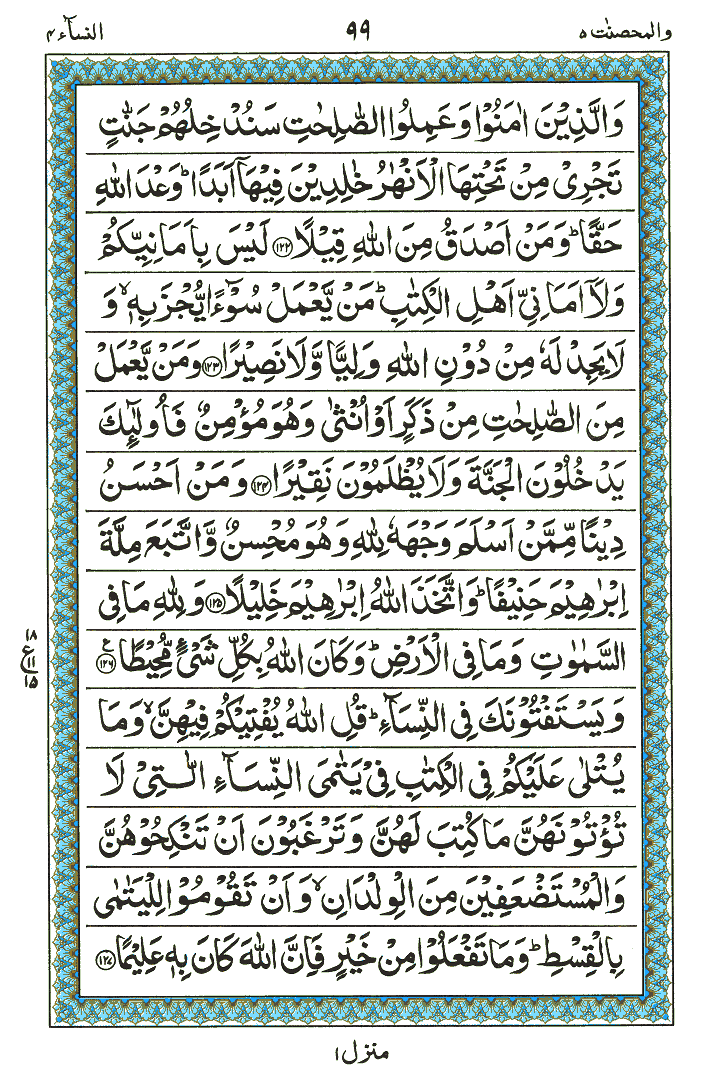 والمحصنٰت ٥ ٩٩ النسآء ٤
وَالَّذِيْنَ اٰمَنُوْا وَعَمِلُوا الصّٰلِحٰتِ سَنُدْخِلُهُمْ جَنّٰتٍ
تَجْرِيْ مِنْ تَحْتِهَا الْاَنْهٰرُ خٰلِدِيْنَ فِيْهَآ اَبَدًا ؕ وَعْدَ اللّٰهِ
حَقًّا ؕ وَمَنْ اَصْدَقُ مِنَ اللّٰهِ قِيْلًا ﴿۱۲۲﴾ لَيْسَ بِاَمَانِيِّكُمْ
وَلَاۤ اَمَانِيِّ اَهْلِ الْكِتٰبِ ؕ مَنْ يَّعْمَلْ سُوْٓءًا يُّجْزَ بِهٖ ۙ وَ
لَا يَجِدْ لَهٗ مِنْ دُوْنِ اللّٰهِ وَلِيًّا وَّلَا نَصِيْرًا ﴿۱۲۳﴾ وَمَنْ يَّعْمَلْ
مِنَ الصّٰلِحٰتِ مِنْ ذَكَرٍ اَوْ اُنْثٰى وَهُوَ مُؤْمِنٌ فَاُولٰٓئِكَ
يَدْخُلُوْنَ الْجَنَّةَ وَلَا يُظْلَمُوْنَ نَقِيْرًا ﴿۱۲۴﴾ وَمَنْ اَحْسَنُ
دِيْنًا مِّمَّنْ اَسْلَمَ وَجْهَهٗ لِلّٰهِ وَهُوَ مُحْسِنٌ وَّاتَّبَعَ مِلَّةَ
اِبْرٰهِيْمَ حَنِيْفًا ؕ وَاتَّخَذَ اللّٰهُ اِبْرٰهِيْمَ خَلِيْلًا ﴿۱۲۵﴾ وَلِلّٰهِ مَا فِي
السَّمٰوٰتِ وَمَا فِي الْاَرْضِ ؕ وَكَانَ اللّٰهُ بِكُلِّ شَيْءٍ مُّحِيْطًا ﴿۱۲۶﴾ ع
۱۸ ع ۱۱ ۱۵
وَيَسْتَفْتُوْنَكَ فِي النِّسَآءِ ؕ قُلِ اللّٰهُ يُفْتِيْكُمْ فِيْهِنَّ ۙ وَمَا
يُتْلٰى عَلَيْكُمْ فِي الْكِتٰبِ فِيْ يَتٰمَى النِّسَآءِ الّٰتِيْ لَا
تُؤْتُوْنَهُنَّ مَا كُتِبَ لَهُنَّ وَتَرْغَبُوْنَ اَنْ تَنْكِحُوْهُنَّ
وَالْمُسْتَضْعَفِيْنَ مِنَ الْوِلْدَانِ ۙ وَاَنْ تَقُوْمُوْا لِلْيَتٰمٰى
بِالْقِسْطِ ؕ وَمَا تَفْعَلُوْا مِنْ خَيْرٍ فَاِنَّ اللّٰهَ كَانَ بِهٖ عَلِيْمًا ﴿۱۲۷﴾
منزل ۱